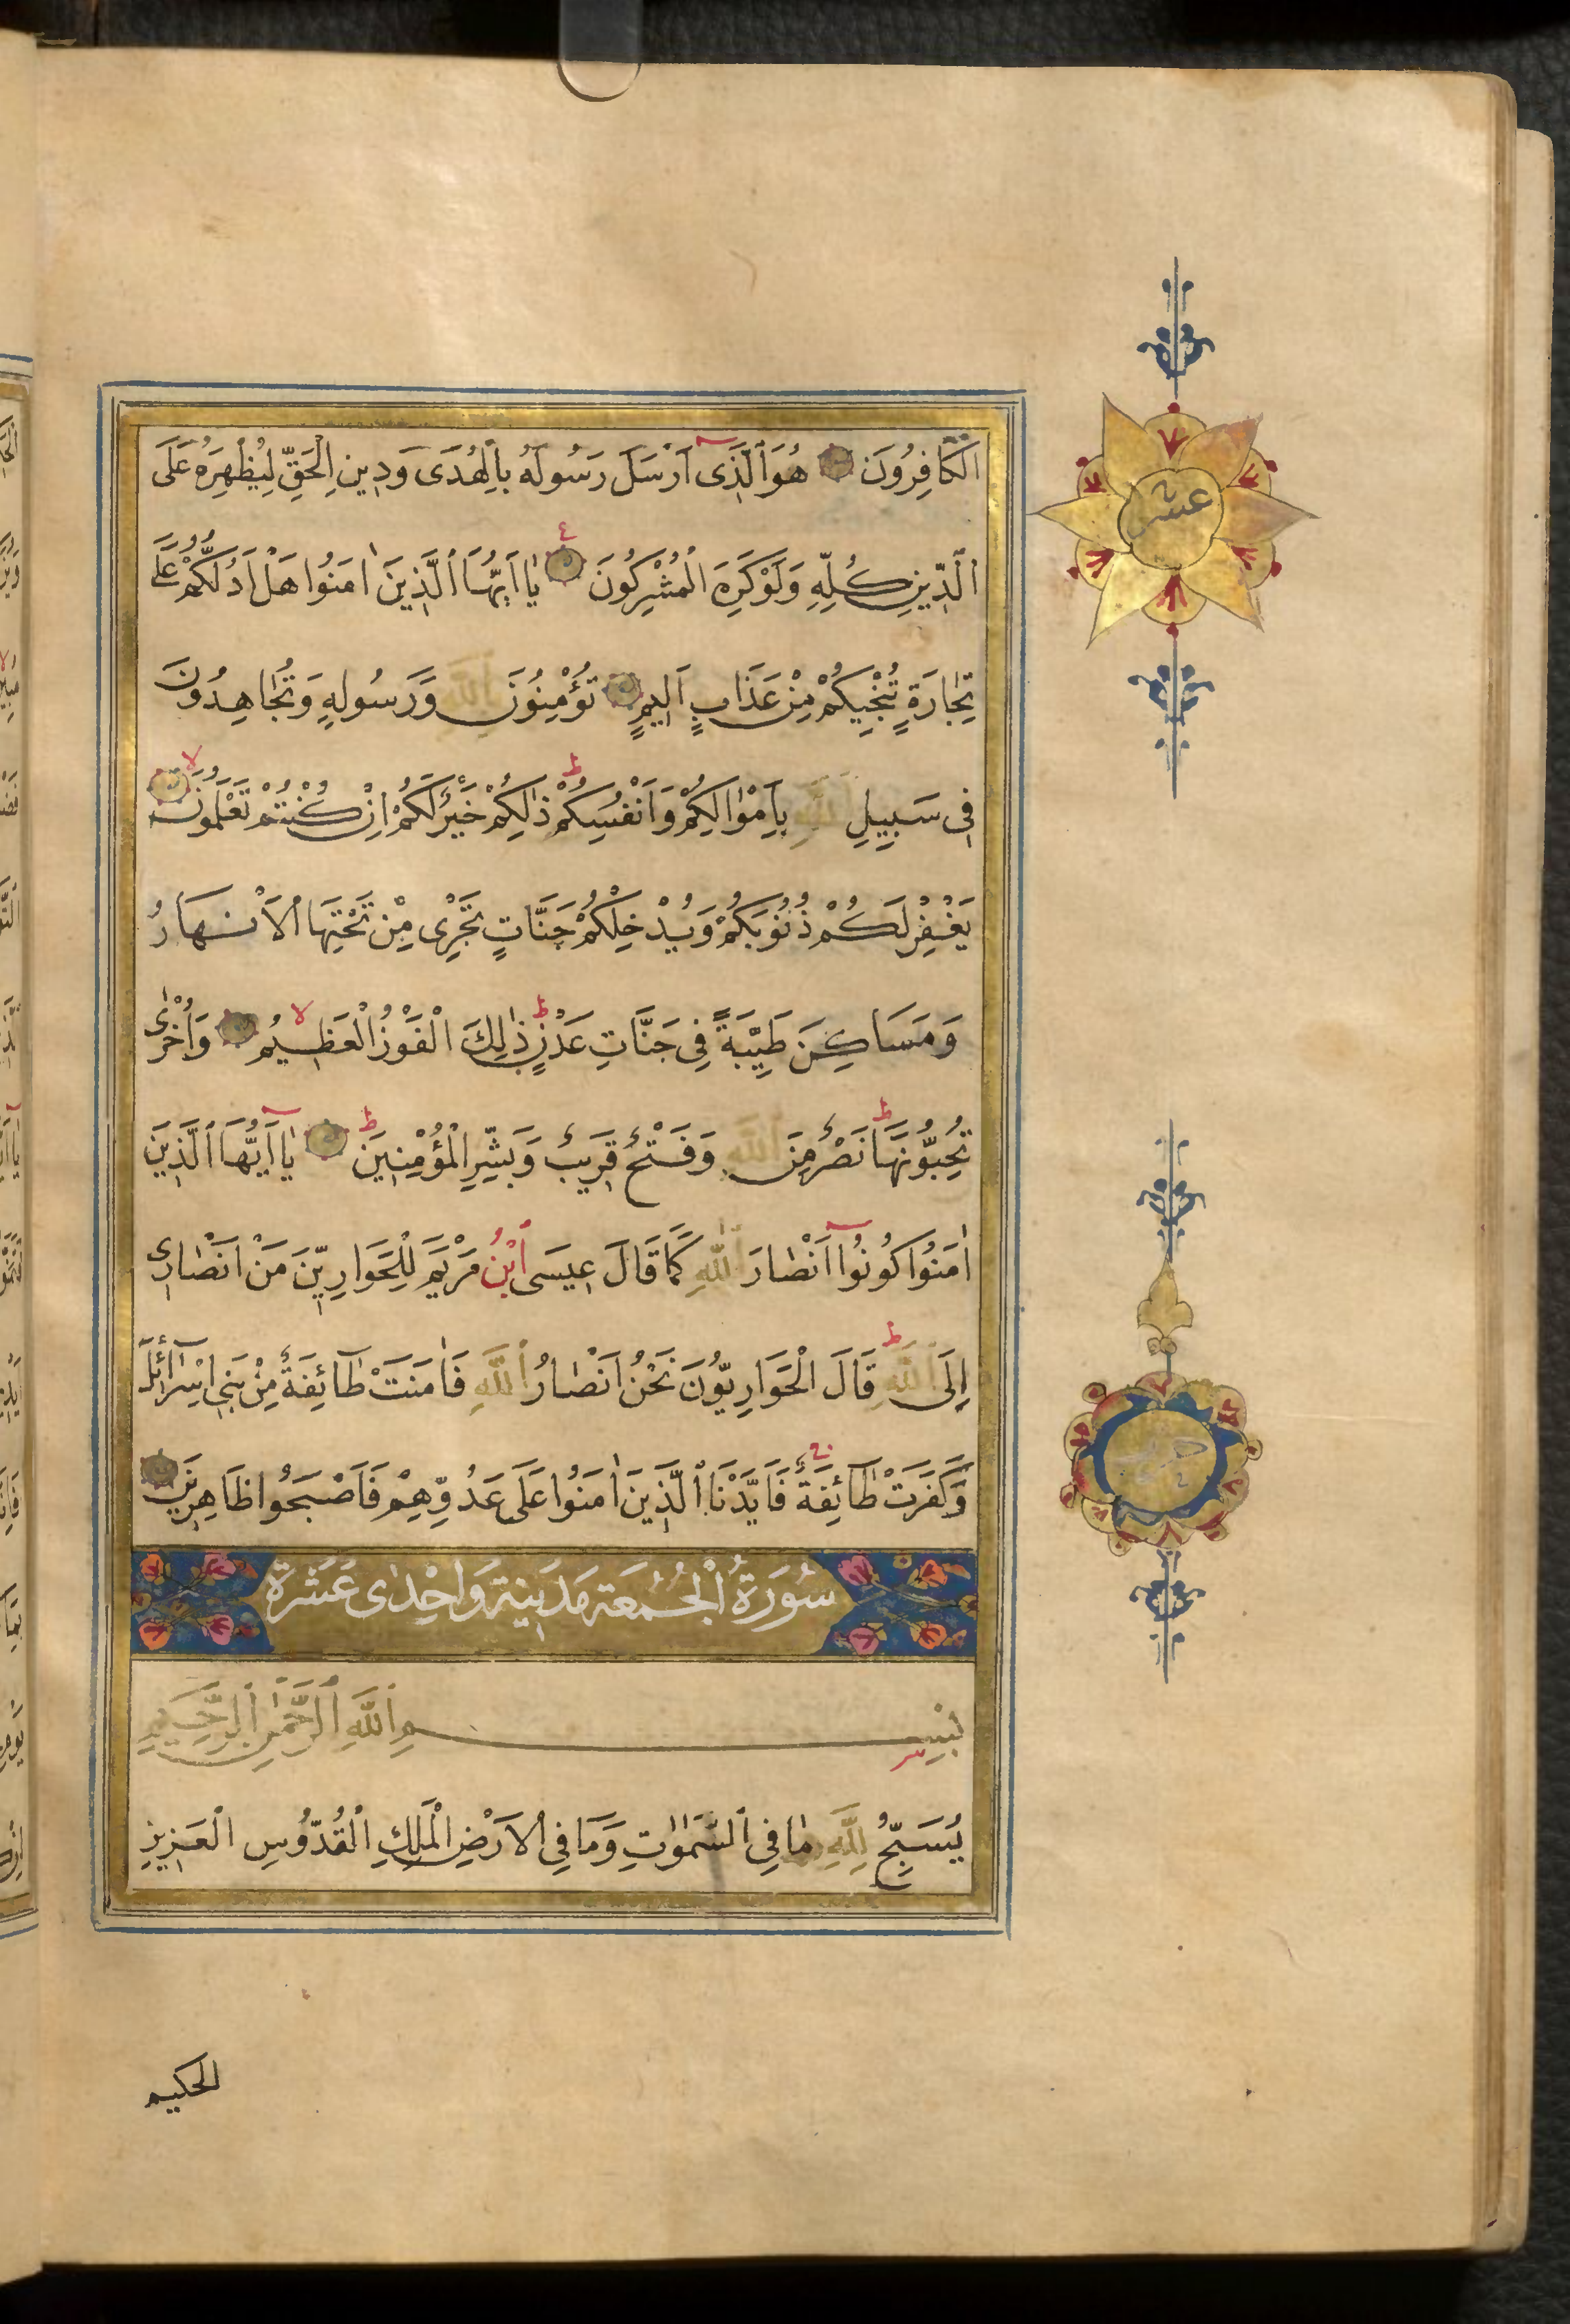 الْكَافِرُونَ هُوَ ٱلَّذِى اَرْسَلَ رَسُولَهُ بِالْهُدَى وَدِينِ الْحَقِّ لِيُظْهِرَهُ عَلَى
ٱلدِّينِ كُلِّهِ وَلَوْ كَرِهَ الْمُشْرِكُونَ يَا اَيُّهَا ٱلَّذِينَ اٰمَنُوا هَلْ اَدُلُّكُمْ عَلَى
تِجَارَةٍ تُنْجِيكُمْ مِنْ عَذَابٍ اَلِيمٍ تُؤْمِنُونَ بِاللَّهِ وَرَسُولِهِ وَتُجَاهِدُونَ
فِى سَبِيلِ ٱللَّهِ بِاَمْوَالِكُمْ وَاَنْفُسِكُمْ ذٰلِكُمْ خَيْرٌ لَكُمْ اِنْ كُنْتُمْ تَعْلَمُونَ
يَغْفِرْ لَكُمْ ذُنُوبَكُمْ وَيُدْخِلْكُمْ جَنَّاتٍ تَجْرِى مِنْ تَحْتِهَا الْاَنْهَارُ
وَمَسَاكِنَ طَيِّبَةً فِى جَنَّاتِ عَدْنٍ ذٰلِكَ الْفَوْزُ الْعَظِيمُ وَاُخْرٰى
تُحِبُّونَهَا نَصْرٌ مِنَ ٱللَّهِ وَفَتْحٌ قَرِيبٌ وَبَشِّرِ الْمُؤْمِنِينَ يَا اَيُّهَا ٱلَّذِينَ
اٰمَنُوا كُونُوا اَنْصَارَ ٱللَّهِ كَمَا قَالَ عِيسَى ٱبْنُ مَرْيَمَ لِلْحَوَارِيِّنَ مَنْ اَنْصَارِى
اِلَى ٱللَّهِ قَالَ الْحَوَارِيُّونَ نَحْنُ اَنْصَارُ ٱللَّهِ فَاٰمَنَتْ طَائِفَةٌ مِنْ بَنِى اِسْرَائِلَ
وَكَفَرَتْ طَائِفَةٌ فَاَيَّدْنَا ٱلَّذِينَ اٰمَنُوا عَلَى عَدُوِّهِمْ فَاَصْبَحُوا ظَاهِرِينَ
سُورَةُ الْجُمُعَة مَدَنِيَة وَاحْدٰى عَشَرَة
بِسْمِ ٱللَّهِ ٱلرَّحْمٰنِ ٱلرَّحِيمِ
يُسَبِّحُ لِلَّهِ مَا فِى ٱلسَّمٰوٰتِ وَمَا فِى الْاَرْضِ الْمَلِكِ ٱلْقُدُّوسِ الْعَزِيزِ
الحكيم
عشر